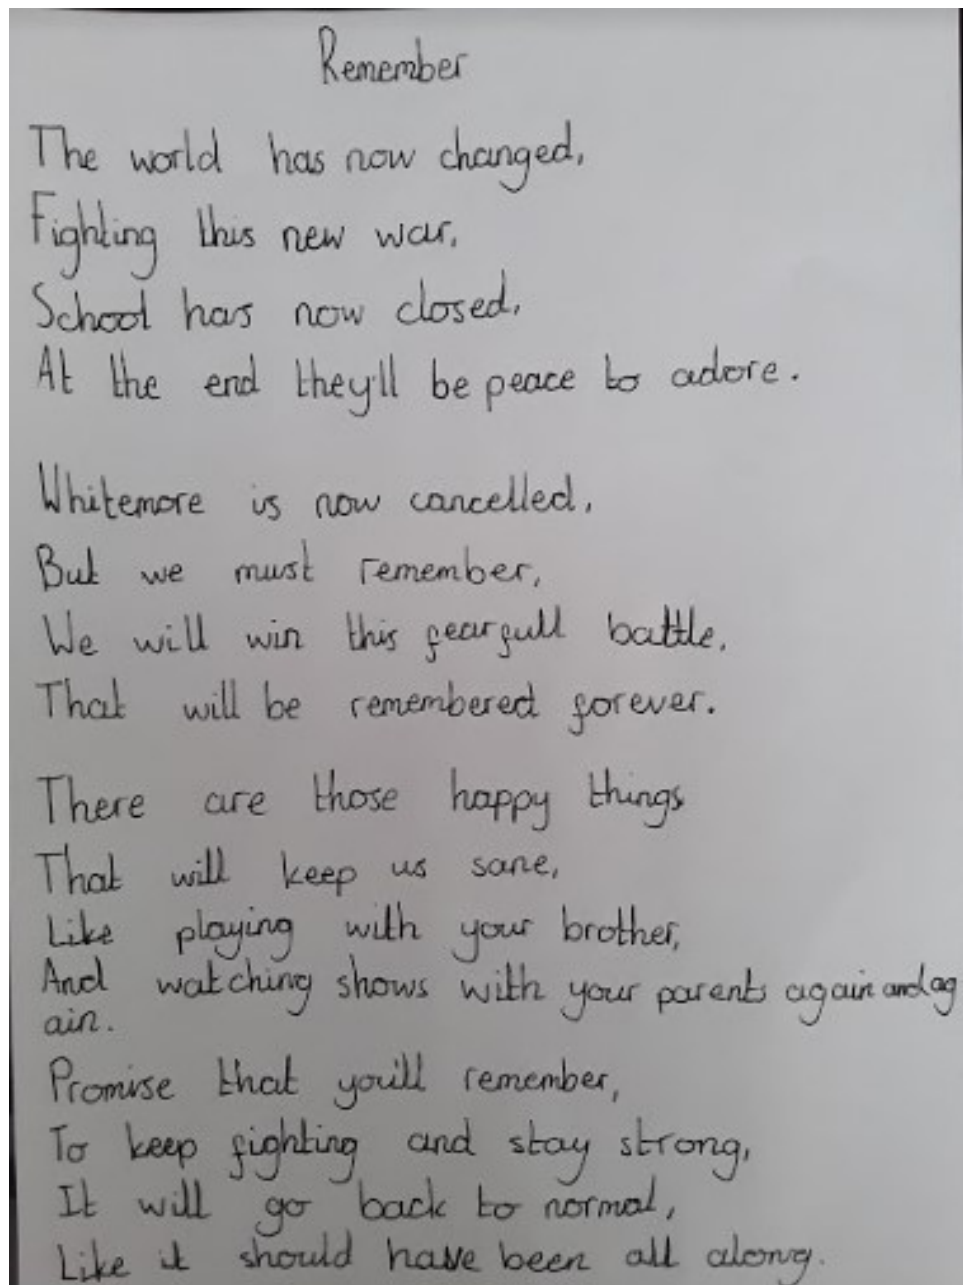 Remember
The world has now changed,
Fighting this new war,
School has now closed,
At the end they'll be peace to adore.
Whitemore is now cancelled,
But we must remember,
We will win this fearfull battle,
That will be remembered forever.
There are those happy things
That will keep us sane,
Like playing with your brother,
And watching shows with your parents again and ag
ain.
Promise that you'll remember,
To keep fighting and stay strong,
It will go back to normal,
Like it should have been all along.